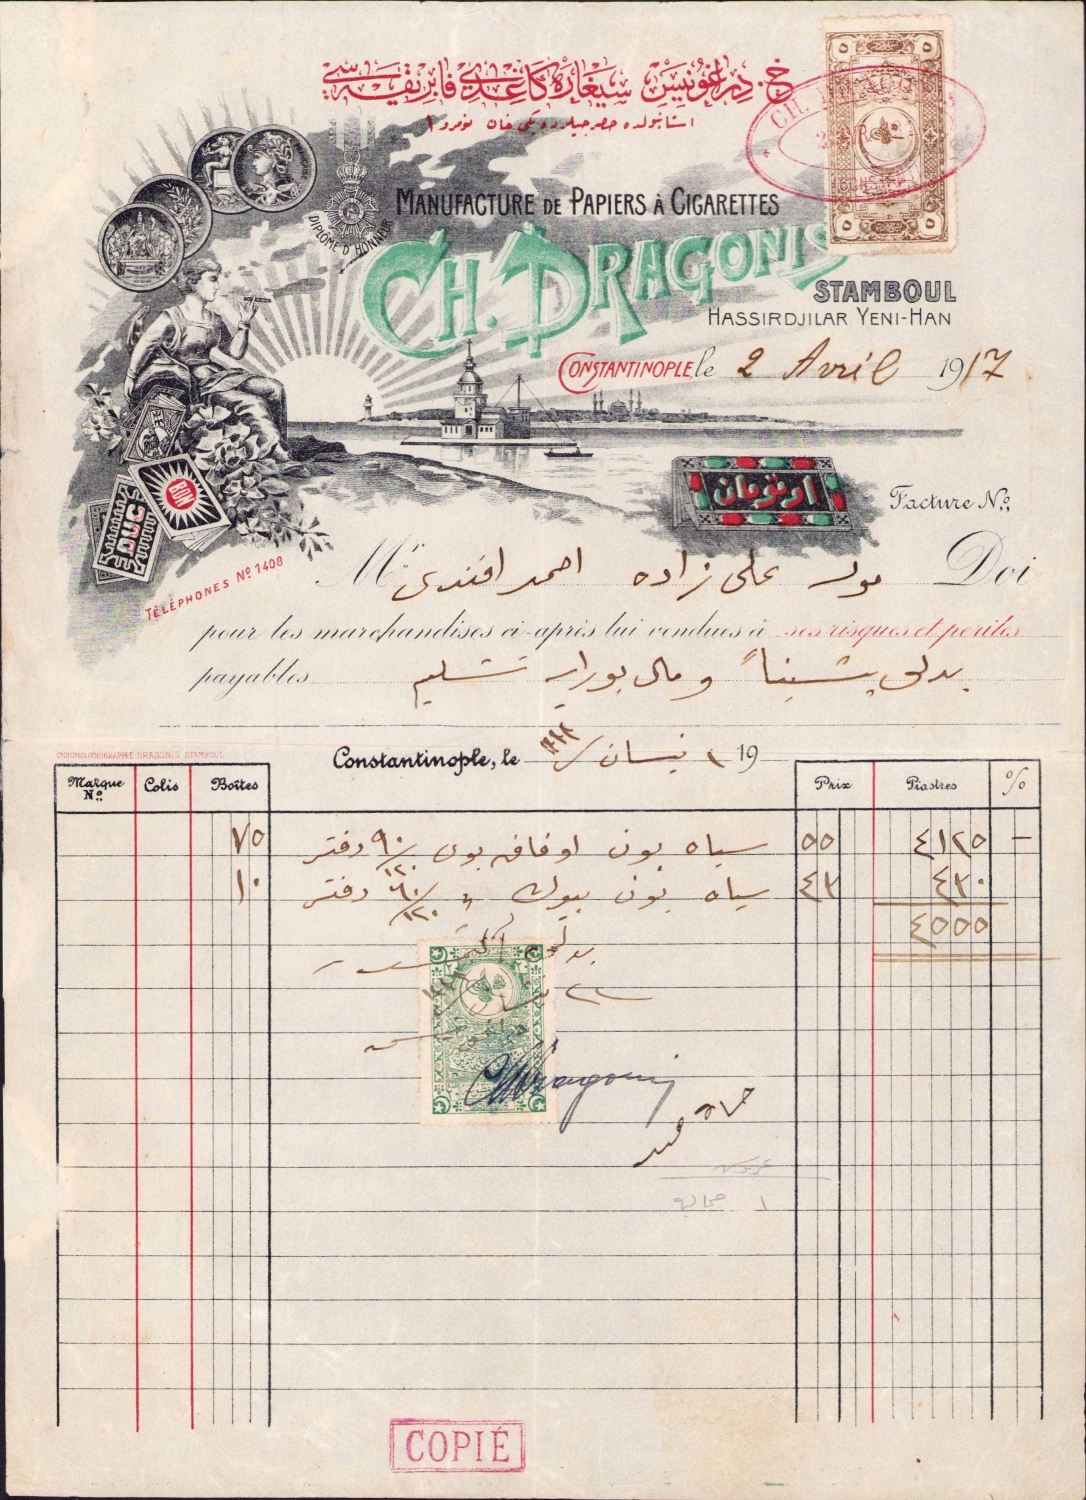 خ. دراغونيس سيغاره كاغدى فابريقه سى
استانبولده حصرجيلرده يكى خان نومرو ١
MANUFACTURE DE PAPIERS À CIGARETTES
CH. DRAGONIS
DIPLÔME D'HONNEUR
STAMBOUL
HASSIRDJILAR YENI-HAN
CONSTANTINOPLE, le 2 Avril 1917
BON
DUC
Facture No.
TÉLÉPHONES No 1408
Mr على زاده احمد افندى Doi
pour les marchandises ci-après lui vendues à ses risques et périles
payables بدلى پشيناً و مال بورايه تسليم
CHROMOLITHOGRAPHIE DRAGONIS STAMBOUL
Constantinople, le نيسان 19
Marque No. Colis Boîtes Prix Piastres %
٧٥ سياه بون اوفاق بوى ٩٠/١٢٠ دفتر ٥٥ ٤١٢٥ —
١٠ سياه بون بيوك ٦٠/١٢٠ دفتر ٤٣ ٤٣٠
٤٥٥٥
Ch Dragonis
COPIÉ